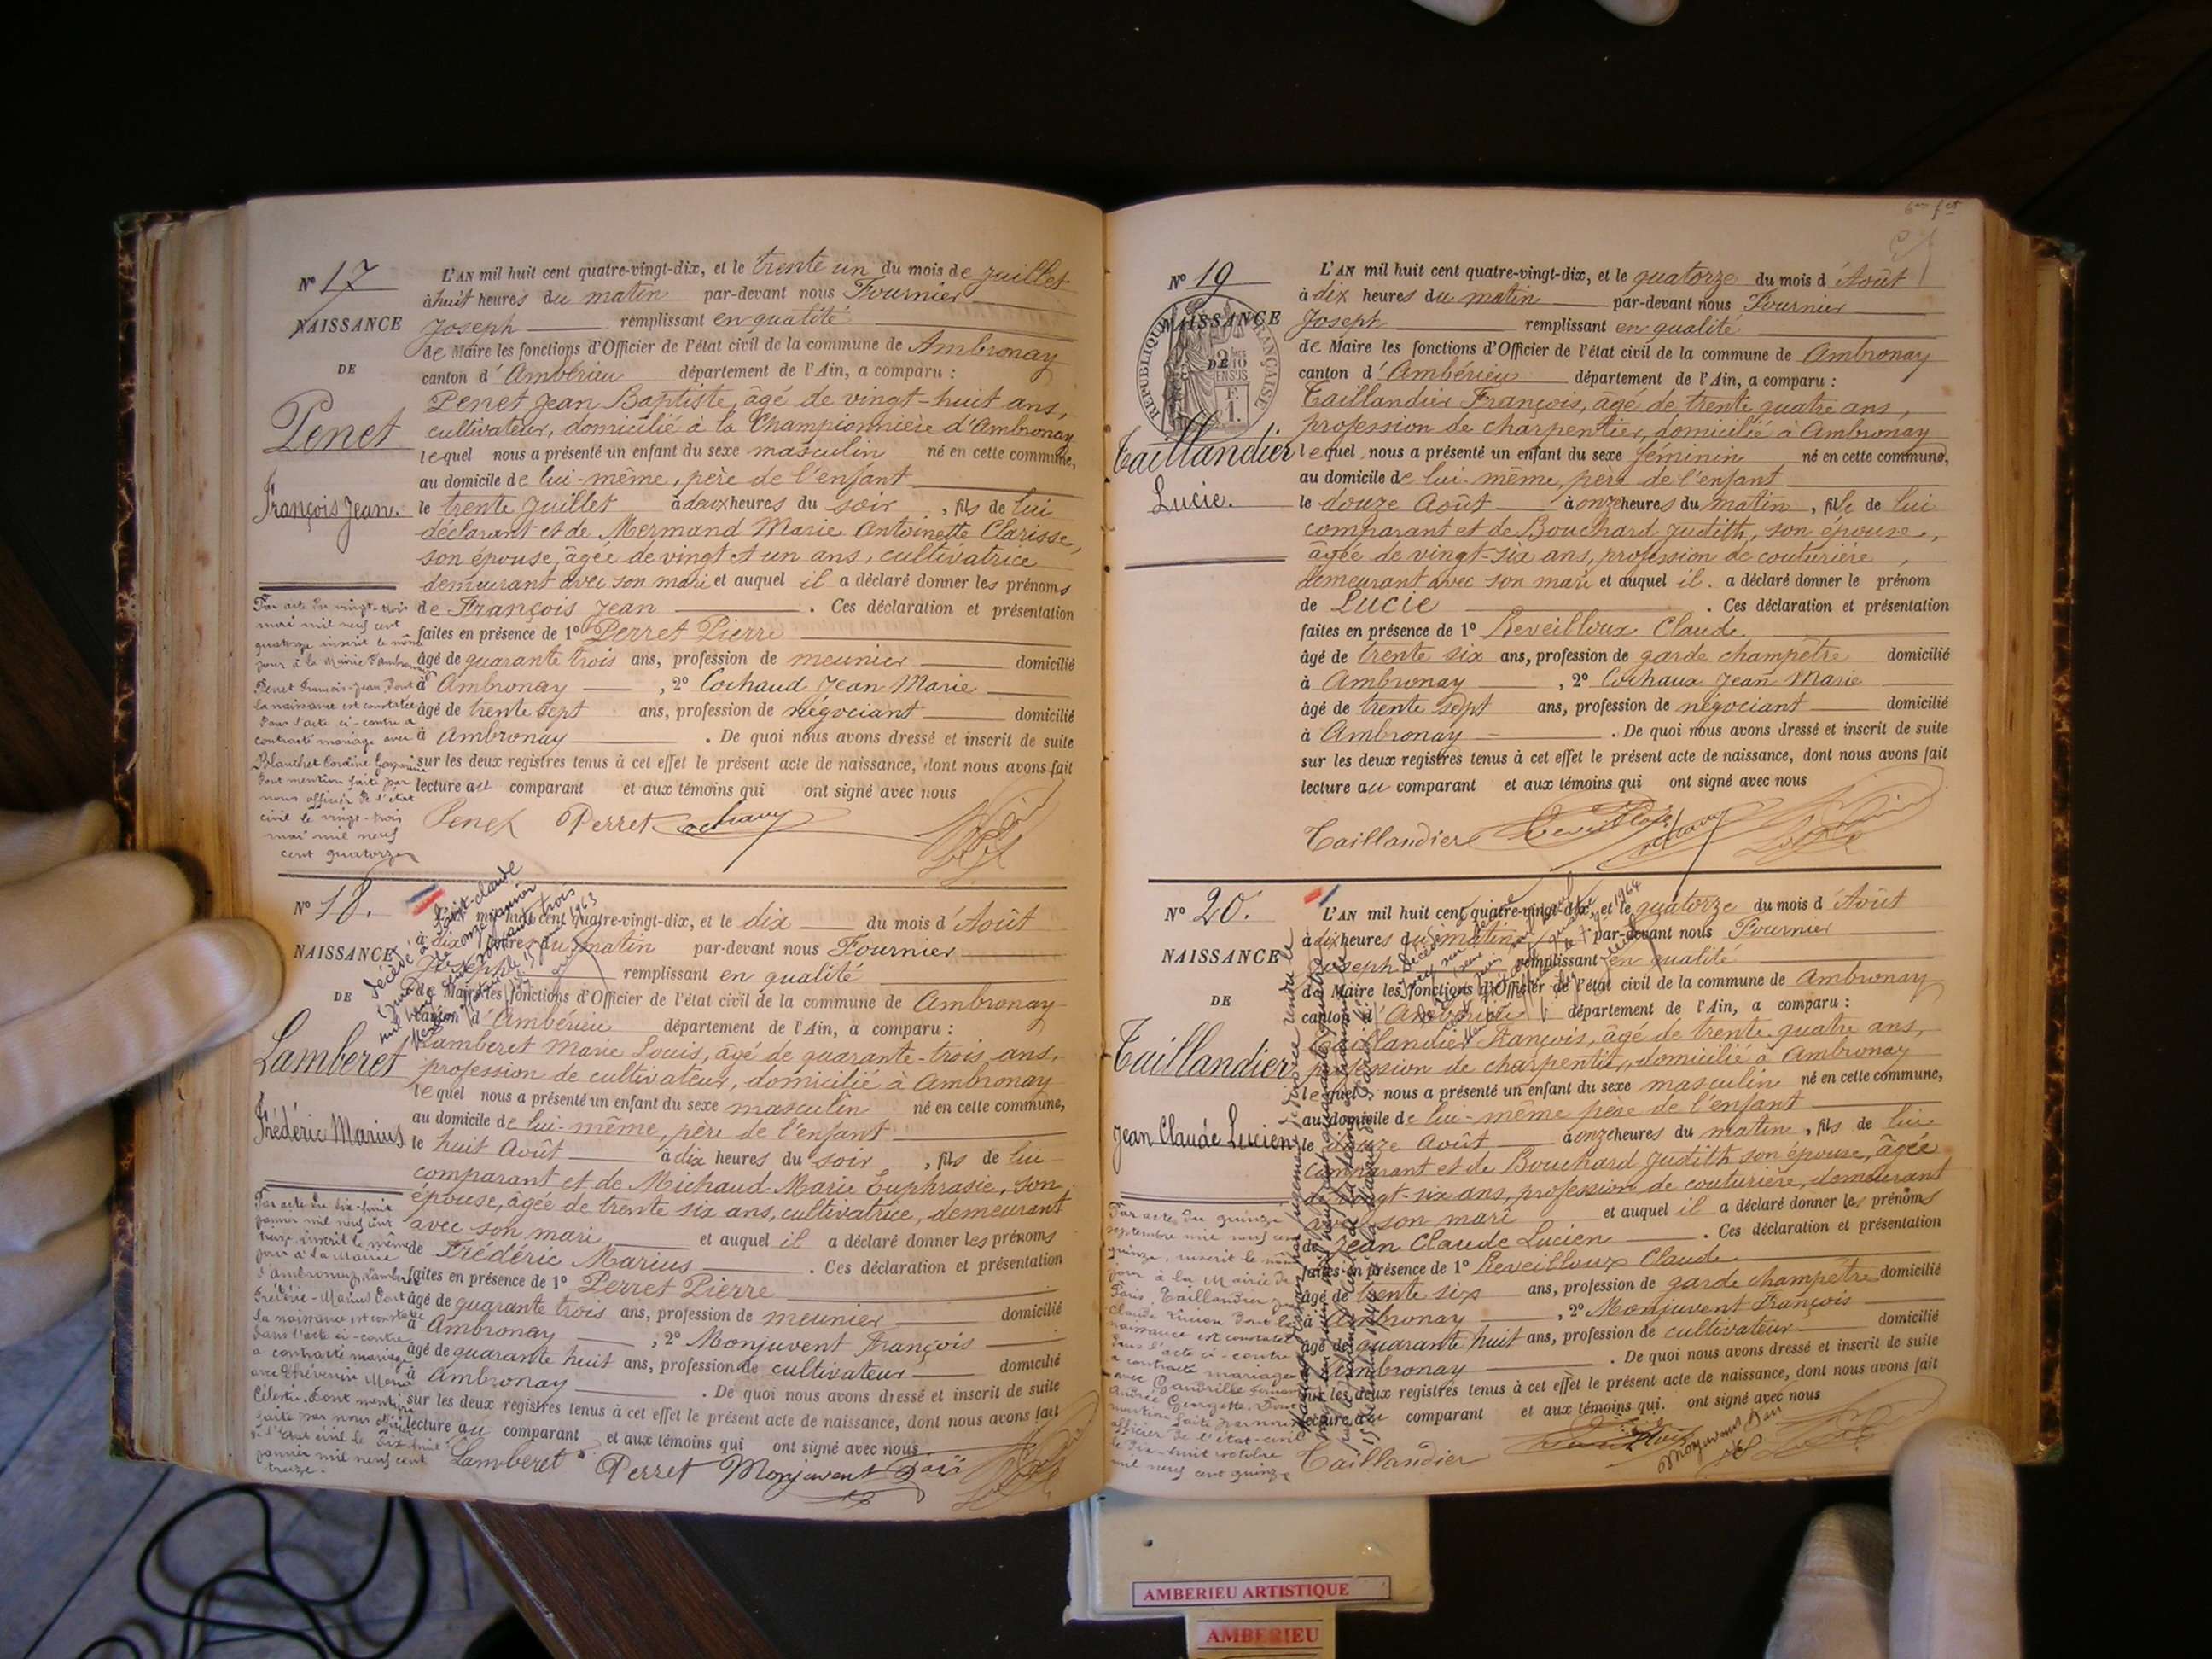 Nº 17
NAISSANCE
DE
Penet
François Jean.
L'AN mil huit cent quatre-vingt-dix, et le trente un du mois de Juillet
à huit heures du matin par-devant nous Fournier
Joseph remplissant en qualité
de Maire les fonctions d'Officier de l'état civil de la commune de Ambronay
canton d'Ambérieu département de l'Ain, a comparu :
Penet Jean Baptiste, âgé de vingt-huit ans,
cultivateur, domicilié à la Championnière d'Ambronay
lequel nous a présenté un enfant du sexe masculin né en cette commune,
au domicile de lui-même, père de l'enfant
le trente Juillet à deux heures du soir, fils de lui
déclarant et de Mermand Marie Antoinette Clarisse,
son épouse, âgée de vingt et un ans, cultivatrice
demeurant avec son mari et auquel il a déclaré donner les prénoms
de François Jean . Ces déclaration et présentation
faites en présence de 1º Perret Pierre
âgé de quarante trois ans, profession de meunier domicilié
à Ambronay , 2º Cochaud Jean Marie
âgé de trente sept ans, profession de négociant domicilié
à Ambronay . De quoi nous avons dressé et inscrit de suite
sur les deux registres tenus à cet effet le présent acte de naissance, dont nous avons fait
lecture au comparant et aux témoins qui ont signé avec nous
Penet Perret Cochaux
Par acte du vingt-trois
mai mil neuf cent
quatorze inscrit le même
jour à la Mairie d'Ambronay
Penet François-Jean, dont
la naissance est constatée
dans l'acte ci-contre a
contracté mariage avec
Blanchet
dont mention faite par
nous officier de l'état
civil le vingt-trois
mai mil neuf
cent quatorze
Nº 18.
NAISSANCE
DE
Lamberet
Frédéric Marius
L'an mil huit cent quatre-vingt-dix, et le dix du mois d'Août
à dix heures du matin par-devant nous Fournier
Joseph remplissant en qualité
de Maire les fonctions d'Officier de l'état civil de la commune de Ambronay
canton d'Ambérieu département de l'Ain, a comparu :
Lamberet Marie Louis, âgé de quarante-trois ans,
profession de cultivateur, domicilié à Ambronay
lequel nous a présenté un enfant du sexe masculin né en cette commune,
au domicile de lui-même, père de l'enfant
le huit Août à dix heures du soir, fils de lui
comparant et de Michaud Marie Euphrasie, son
épouse, âgée de trente six ans, cultivatrice, demeurant
avec son mari et auquel il a déclaré donner les prénoms
de Frédéric Marius . Ces déclaration et présentation
faites en présence de 1º Perret Pierre
âgé de quarante trois ans, profession de meunier domicilié
à Ambronay , 2º Monjuvent François
âgé de quarante huit ans, profession de cultivateur domicilié
à Ambronay . De quoi nous avons dressé et inscrit de suite
sur les deux registres tenus à cet effet le présent acte de naissance, dont nous avons fait
lecture au comparant et aux témoins qui ont signé avec nous
Lamberet Perret Monjuvent
Par acte du dix-huit
janvier mil neuf cent
treize inscrit le même
jour à la Mairie
d'Ambronay, Lamberet
Frédéric-Marius dont
la naissance est constatée
dans l'acte ci-contre
a contracté mariage
avec Marie
Célestie, dont mention
faite par nous officier
de l'Etat civil le dix-huit
janvier mil neuf cent
treize.
Nº 19
NAISSANCE
DE
RÉPUBLIQUE FRANÇAISE
Taillandier
Lucie.
L'AN mil huit cent quatre-vingt-dix, et le quatorze du mois d'Août
à dix heures du matin par-devant nous Fournier
Joseph remplissant en qualité
de Maire les fonctions d'Officier de l'état civil de la commune de Ambronay
canton d'Ambérieu département de l'Ain, a comparu :
Taillandier François, âgé de trente quatre ans,
profession de charpentier, domicilié à Ambronay
lequel nous a présenté un enfant du sexe féminin né en cette commune,
au domicile de lui-même, père de l'enfant
le douze Août à onze heures du matin, fille de lui
comparant et de Bouchard Judith, son épouse,
âgée de vingt-six ans, profession de couturière,
demeurant avec son mari et auquel il a déclaré donner le prénom
de Lucie . Ces déclaration et présentation
faites en présence de 1º Reveilloux Claude
âgé de trente six ans, profession de garde champêtre domicilié
à Ambronay , 2º Cochaux Jean Marie
âgé de trente sept ans, profession de négociant domicilié
à Ambronay . De quoi nous avons dressé et inscrit de suite
sur les deux registres tenus à cet effet le présent acte de naissance, dont nous avons fait
lecture au comparant et aux témoins qui ont signé avec nous
Taillandier
Nº 20.
NAISSANCE
DE
Taillandier
Jean Claude Lucien
L'AN mil huit cent quatre-vingt-dix, et le quatorze du mois d'Août
à dix heures du matin par-devant nous Fournier
Joseph remplissant en qualité
de Maire les fonctions d'Officier de l'état civil de la commune de Ambronay
canton d'Ambérieu département de l'Ain, a comparu :
Taillandier François, âgé de trente quatre ans,
profession de charpentier, domicilié à Ambronay
lequel nous a présenté un enfant du sexe masculin né en cette commune,
au domicile de lui-même père de l'enfant
le douze Août à onze heures du matin, fils de lui
comparant et de Bouchard Judith son épouse, âgée
de vingt-six ans, profession de couturière, demeurant
avec son mari et auquel il a déclaré donner les prénoms
de Jean Claude Lucien . Ces déclaration et présentation
faites en présence de 1º Reveilloux Claude
âgé de trente six ans, profession de garde champêtre domicilié
à Ambronay , 2º Monjuvent François
âgé de quarante huit ans, profession de cultivateur domicilié
à Ambronay . De quoi nous avons dressé et inscrit de suite
sur les deux registres tenus à cet effet le présent acte de naissance, dont nous avons fait
lecture au comparant et aux témoins qui ont signé avec nous
Taillandier
Par acte du quinze
septembre mil neuf cent
quinze, inscrit le même
jour à la Mairie de
Paris, Taillandier Jean
Claude Lucien dont la
naissance est constatée
dans l'acte ci-contre
a contracté mariage
avec
Georgette. Dont
mention faite par nous
officier de l'état-civil
le dix-huit octobre
mil neuf cent quinze
AMBERIEU ARTISTIQUE
AMBERIEU